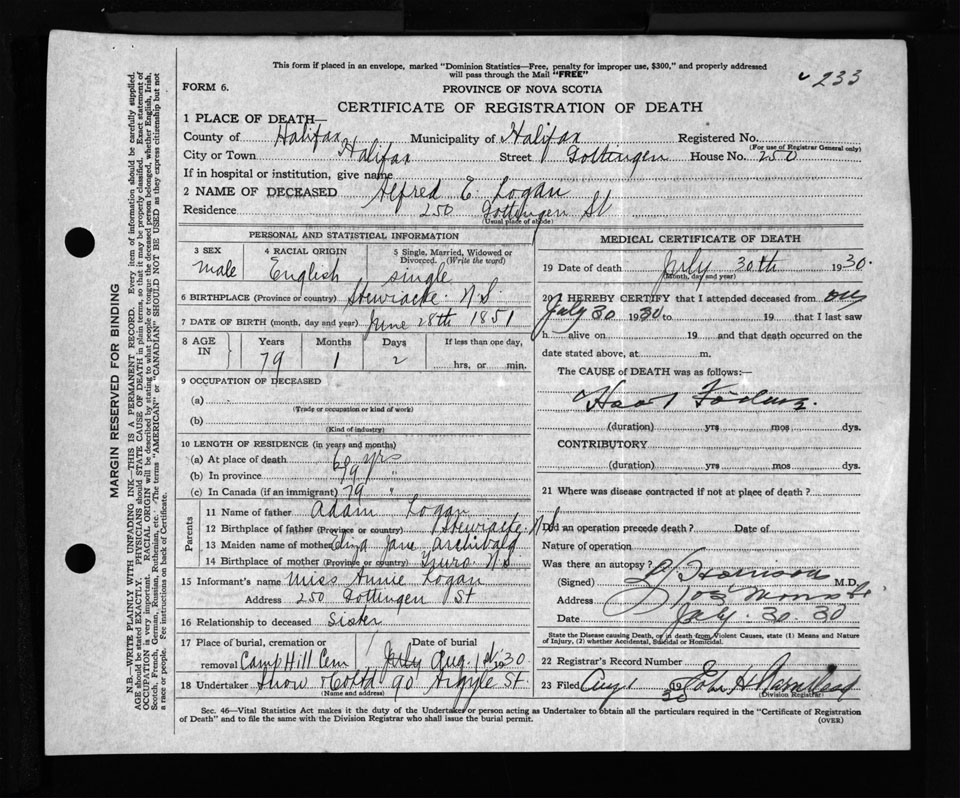 This form if placed in an envelope, marked "Dominion Statistics—Free, penalty for improper use, $300," and properly addressed
will pass through the Mail "FREE"
233
FORM 6. PROVINCE OF NOVA SCOTIA
CERTIFICATE OF REGISTRATION OF DEATH
1 PLACE OF DEATH—
County of Halifax Municipality of Halifax Registered No.
(For use of Registrar General only)
City or Town Halifax Street Gottingen House No. 250
If in hospital or institution, give name
2 NAME OF DECEASED Alfred E. Logan
Residence 250 Gottingen St
(Usual place of abode)
PERSONAL AND STATISTICAL INFORMATION
3 SEX 4 RACIAL ORIGIN 5 Single, Married, Widowed or
Divorced. (Write the word)
male English single
6 BIRTHPLACE (Province or country) Stewiacke N.S.
7 DATE OF BIRTH (month, day and year) June 28th 1851
8 AGE IN Years Months Days If less than one day,
79 1 2 hrs. or min.
9 OCCUPATION OF DECEASED
(a)
(Trade or occupation or kind of work)
(b)
(Kind of industry)
10 LENGTH OF RESIDENCE (in years and months)
(a) At place of death yrs
(b) In province 79 "
(c) In Canada (if an immigrant) 79 "
Parents
11 Name of father Adam Logan
12 Birthplace of father (Province or country) Stewiacke N.S
13 Maiden name of mother Eliza Jane Archibald
14 Birthplace of mother (Province or country) Truro N.S
15 Informant's name Miss Annie Logan
Address 250 Gottingen St
16 Relationship to deceased Sister
17 Place of burial, cremation or Date of burial
removal Camp Hill Cem July Aug. 1st 1930
18 Undertaker Snow & Co Ltd 90 Argyle St.
(Name and address)
MEDICAL CERTIFICATE OF DEATH
19 Date of death July 30th 1930.
(Month, day and year)
20 I HEREBY CERTIFY that I attended deceased from
July 30 1930 to 19 that I last saw
h alive on 19 and that death occurred on the
date stated above, at m.
The CAUSE of DEATH was as follows:—
(duration) yrs mos dys.
CONTRIBUTORY
(duration) yrs mos dys.
21 Where was disease contracted if not at place of death?
Did an operation precede death? Date of
Nature of operation
Was there an autopsy?
(Signed) M.D.
Address
Date July 30 30
State the Disease causing Death, or in death from Violent Causes, state (1) Means and Nature
of Injury, (2) whether Accidental, Suicidal or Homicidal.
22 Registrar's Record Number
23 Filed Aug 1
(Division Registrar)
Sec. 46—Vital Statistics Act makes it the duty of the Undertaker or person acting as Undertaker to obtain all the particulars required in the "Certificate of Registration
of Death" and to file the same with the Division Registrar who shall issue the burial permit.
(OVER)
MARGIN RESERVED FOR BINDING
N.B.—WRITE PLAINLY WITH UNFADING INK—THIS IS A PERMANENT RECORD. Every item of information should be carefully supplied.
AGE should be stated EXACTLY. PHYSICIANS should STATE CAUSE OF DEATH in plain terms, so that it may be properly classified. Exact statement of
OCCUPATION is very important. RACIAL ORIGIN will be described by stating to what people or tongue the deceased person belonged, whether English, Irish,
Scotch, French, German, Russian, Ruthenian, etc. The terms "AMERICAN" or "CANADIAN" SHOULD NOT BE USED as they express citizenship but not
a race or people. Fee instructions on back of Certificate.